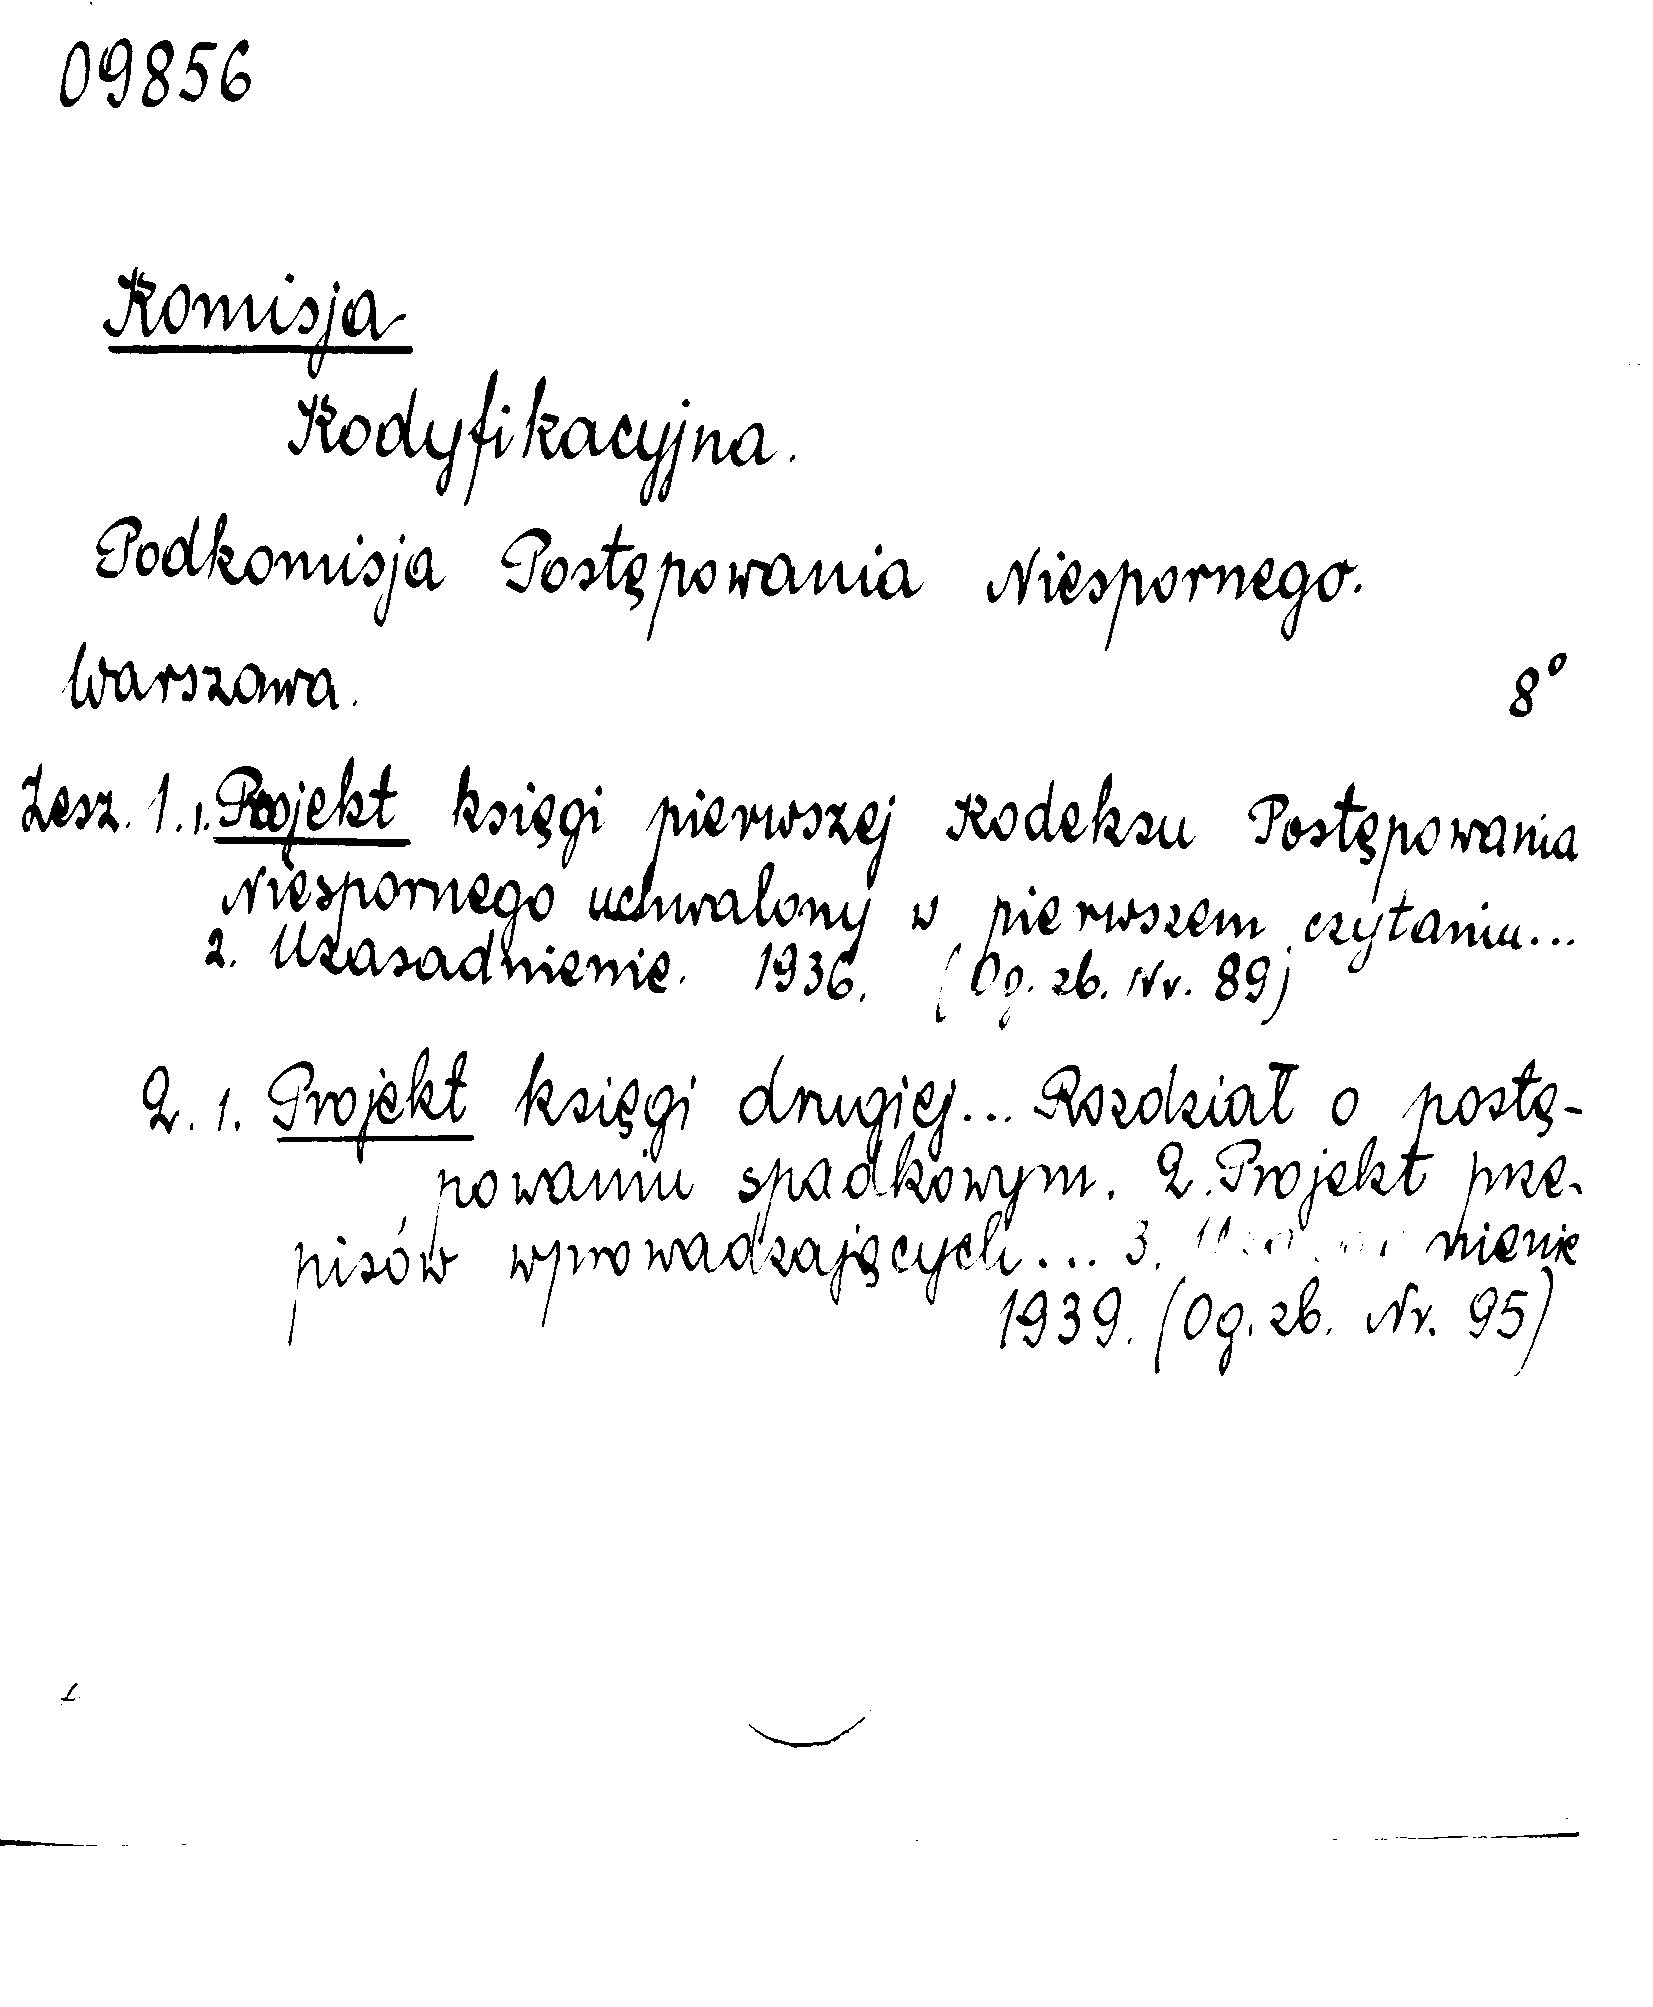 09856
Komisja
Kodyfikacyjna.
Podkomisja Postępowania Niespornego.
Warszawa. 8°
Zesz. 1. 1. Projekt księgi pierwszej Kodeksu Postępowania
Niespornego uchwalony w pierwszem czytaniu...
2. Uzasadnienie. 1936. (Og. zb. Nr. 89)
2. 1. Projekt księgi drugiej... Rozdział o postę-
powaniu spadkowym. 2. Projekt prze-
pisów wprowadzających... 3. nienie
1939. (Og. zb. Nr. 95)